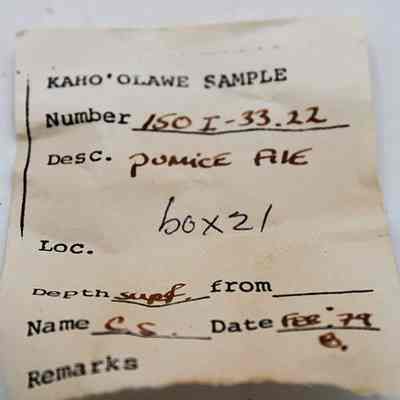 KAHO'OLAWE SAMPLE
Number 150 I-33.22
Desc. PUMICE FILE
box 21
Loc.
Depth surf. from
Name C.S. Date FEB. '79
8.
Remarks